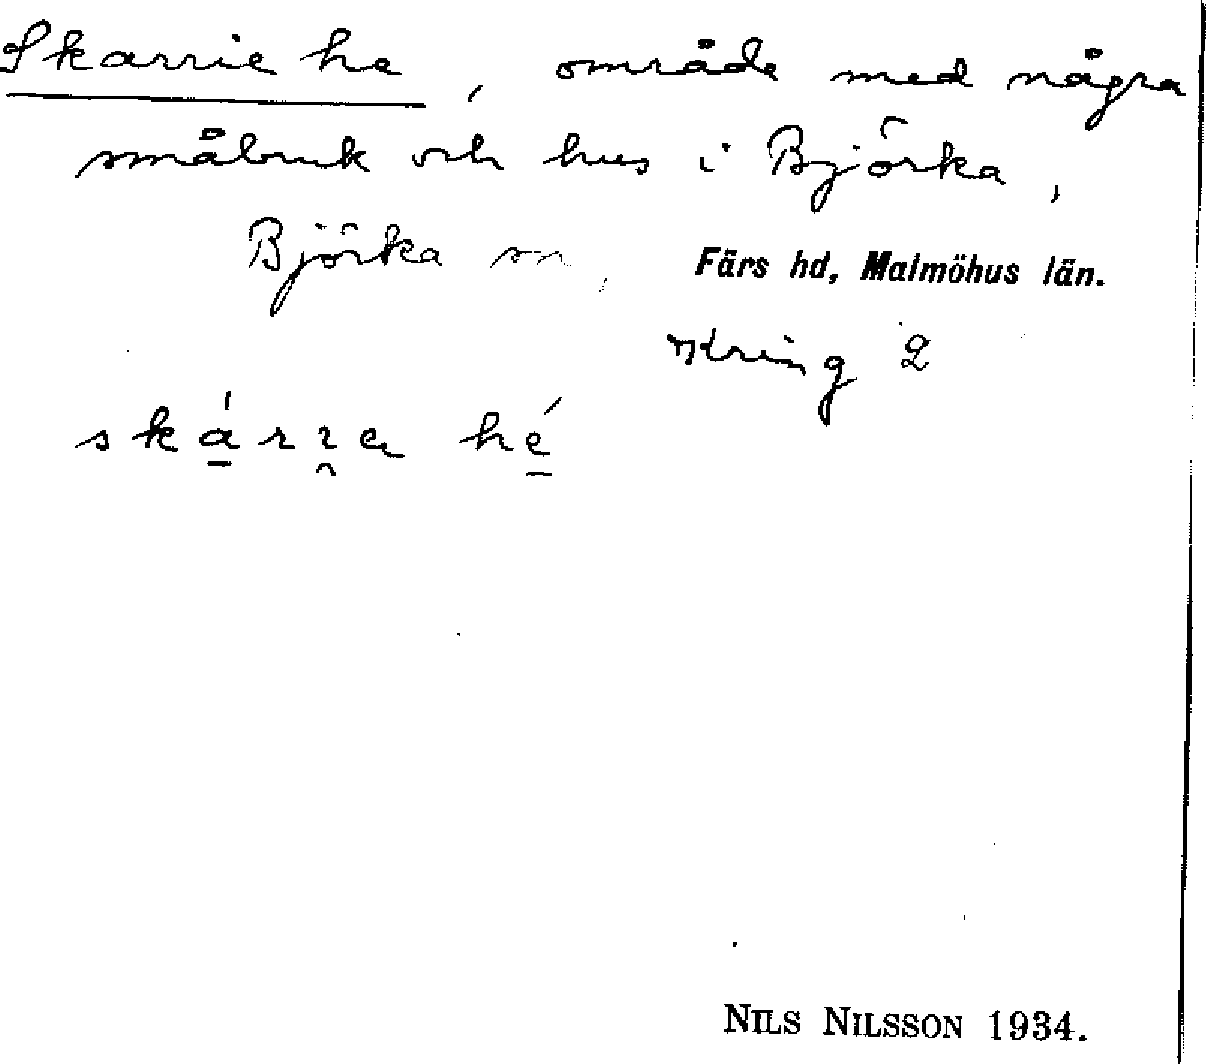 Skarrie he, område med några
småbruk och hus i Björka,
Björka sn, Färs hd, Malmöhus län.
Kring 2
skárra hé
NILS NILSSON 1934.